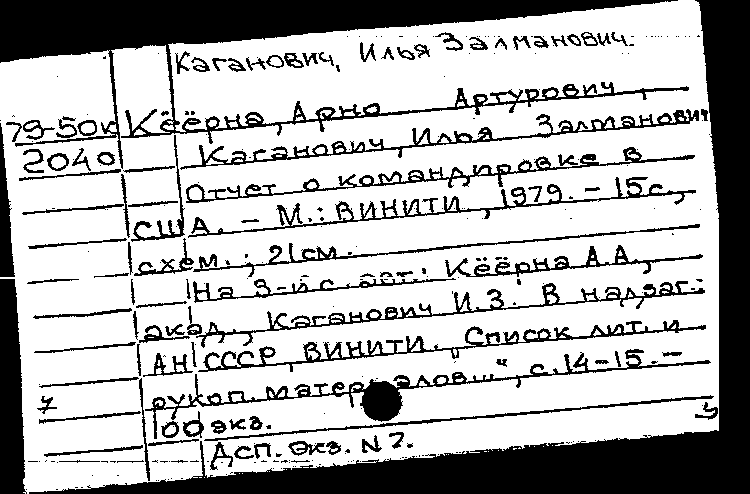 Каганович, Илья Залманович.
79-50к Кёёрна, Арно Артурович,
2040 Каганович, Илья Залманович
Отчет о командировке в
США. – М.: ВИНИТИ, 1979. – 15с.,
схем.; 21см.
На 3-й с. авт.: Кёёрна А.А.,
акад., Каганович И.З. В надзаг.:
АН СССР, ВИНИТИ. „Список лит. и
рукоп. материалов...", с.14-15. –
100 экз.
Дсп. Экз. N 2.